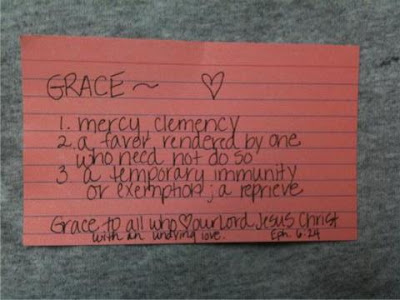 GRACE ~ ♡
1. mercy, clemency
2. a favor rendered by one
who need not do so
3 a temporary immunity
or exemption; a reprieve
Grace to all who ♡ our Lord Jesus Christ
with an undying love. Eph. 6:24